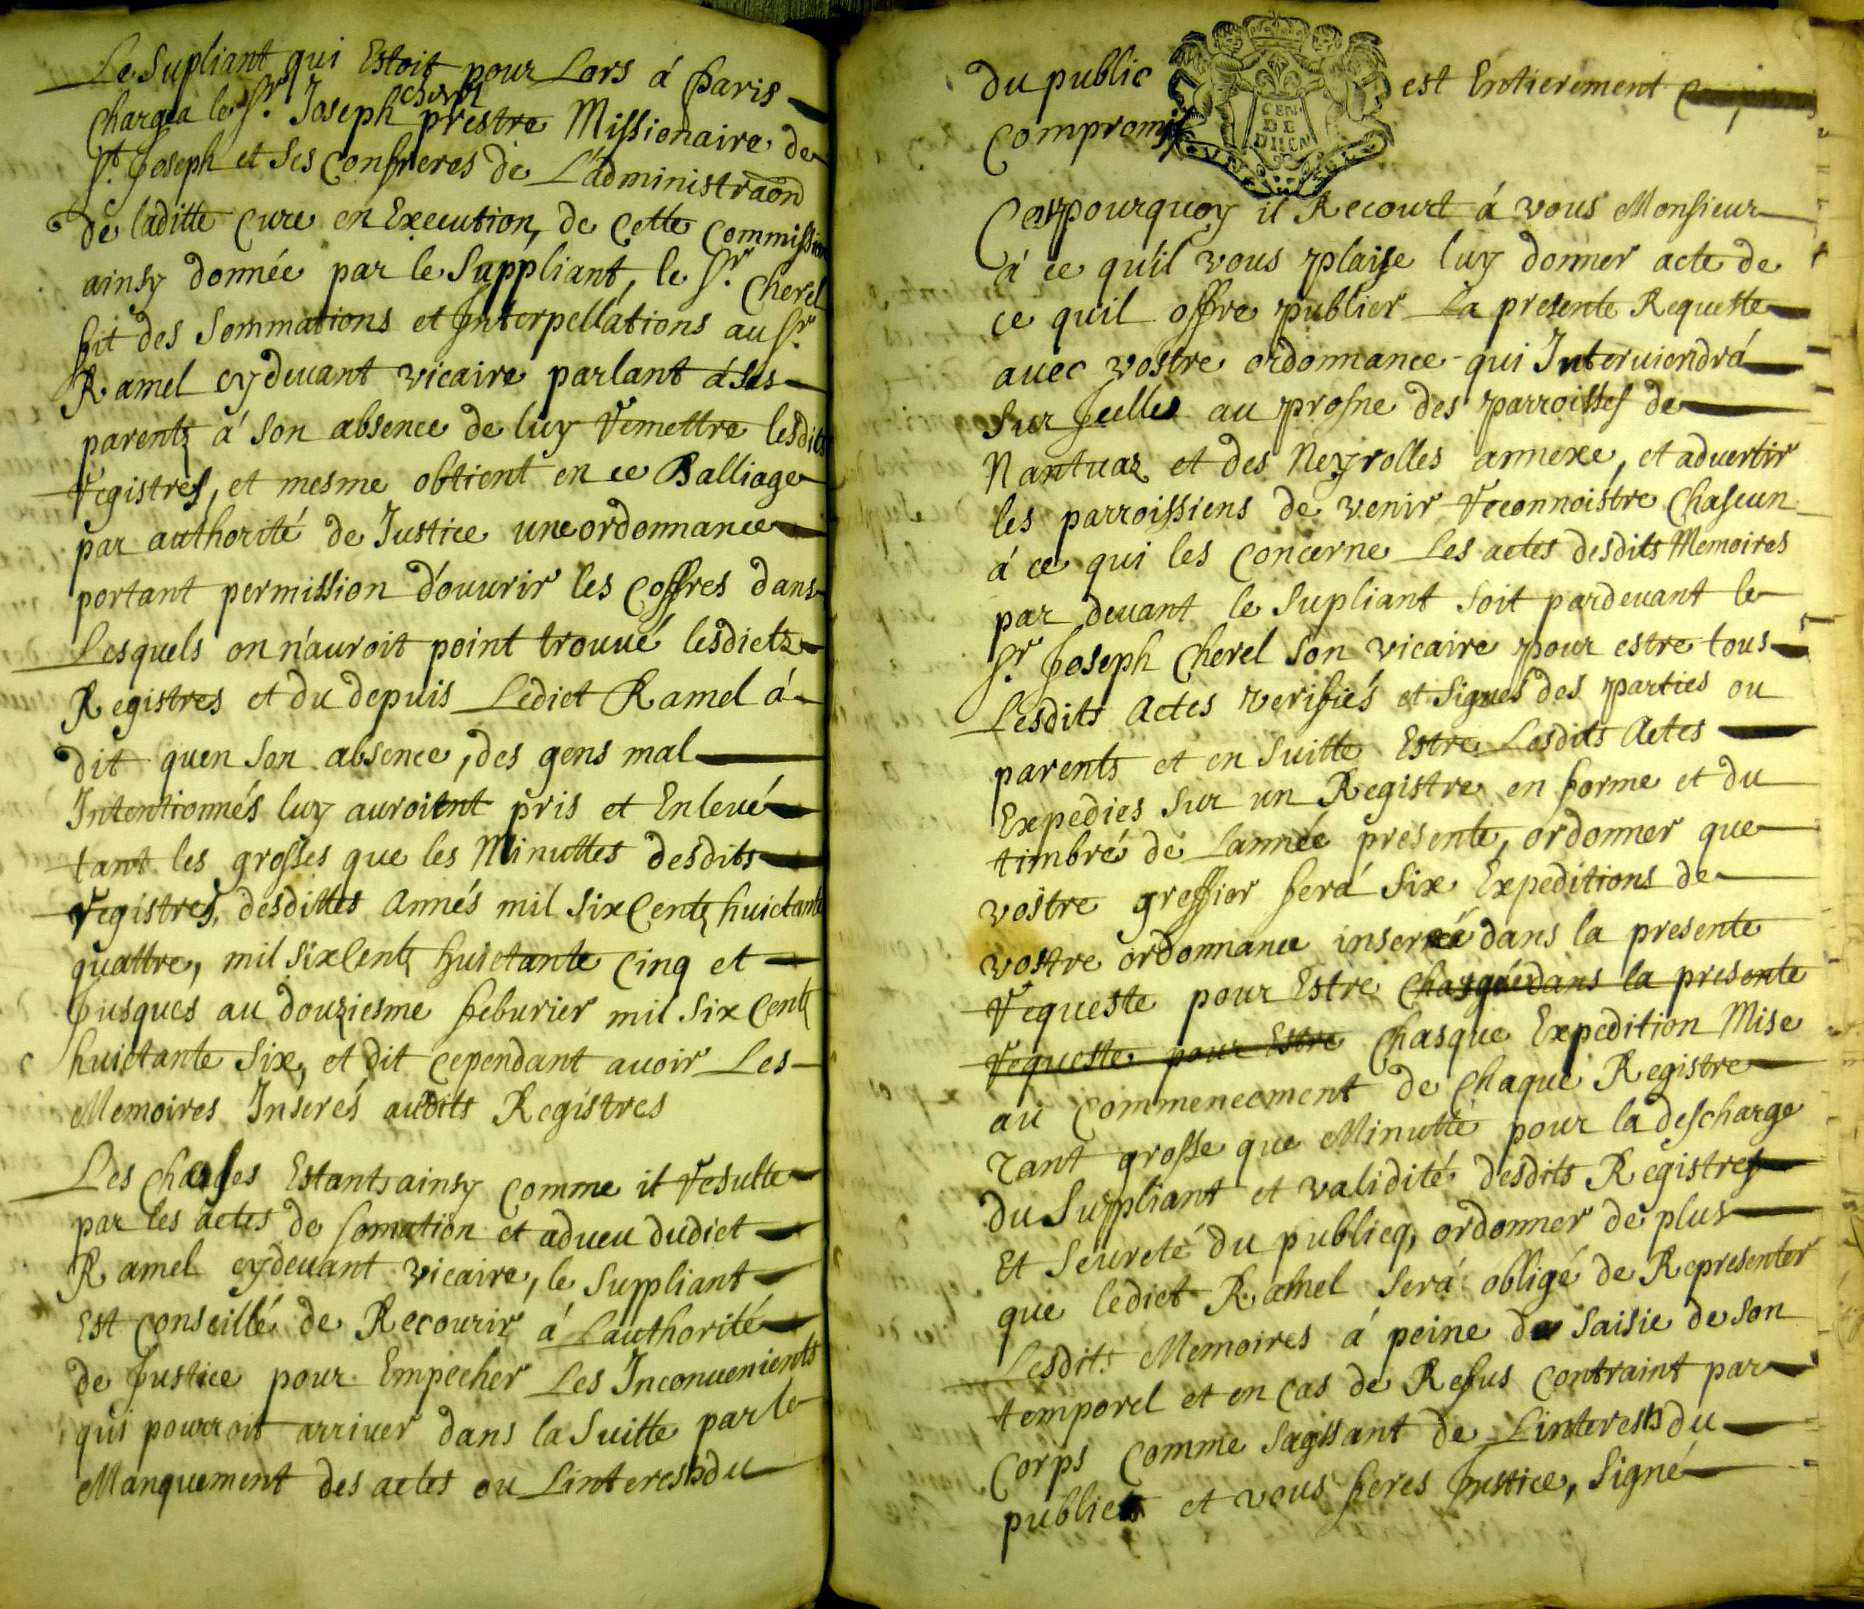 Le Supliant qui Estoit pour Lors á Paris
Chargea le Sr. Joseph cherel prestre Missionaire de
St. Joseph et Ses Confreres de L'administraōn
de laditte Cure en Execution, de Cette Commission
ainsy donnée par le Suppliant, le Sr. Cherel
fit des Sommations et Interpellations au Sr.
Ramel cydeuant vicaire parlant á Ses
parents á Son absence de luy remettre lesdits
registres, et mesme obtient en ce Balliage
par authorité de Justice une ordonnance
portant permission d'ouurir les Coffres dans
Lesquels on n'auroit point trouué lesdicts
Registres et du depuis Ledict Ramel á
dit quen Son absence, des gens mal
Intentionnés luy auroient pris et Enleué
tant les grosses que les Minuttes desdits
registres, desdittes Annés mil Six Cents huictante
quattre, mil Six Cents huictante Cinq et
Jusques au douziesme feburier mil Six Cents
huictante Six, et dit cependant auoir Les
Memoires Inserés audits Registres
Les Choses Estants ainsy Comme il resulte
par les actes de Somation et adueu dudict
Ramel cydeuant vicaire, le Suppliant
Est Conseillé de Recourir á Lauthorité
de Justice pour Empecher Les Inconuenients
qui pourroit arriuer dans la Suitte par le
Manquement des actes ou Linterest du
du public est Entierement
Compromis
CEN
DE
DIION
Cestpourquoy il Recourt á vous Monsieur
á ce quil vous plaise luy donner acte de
ce quil offre publier La presente Requeste
auec vostre ordonnance qui Interuiendrá
Sur Jcelle au prosne des parroisses de
Nantuaz et des Neyrolles annexe, et aduertir
les parroissiens de venir reconnoistre Chascun
á ce qui les Concerne Les actes desdits Memoires
par deuant le Supliant Soit pardeuant le
Sr. Joseph Cherel Son vicaire pour estre tous
Lesdits Actes verifiés et Signés des parties ou
parents et en Suitte Estre Lesdits Actes
Expedies Sur un Registre en forme et du
timbré de Lannée presente, ordonner que
vostre greffier ferá Six Expeditions de
vostre ordonnance inserée dans la presente
requeste pour Estre Chasque dans la presente
requeste pour Estre Chasque Expedition Mise
au Commencement de Chaque Registre
Tant grosse que Minutte pour la descharge
du Suppliant et validité desdits Registres
Et Seureté du publicq, ordonner de plus
que ledict Ramel Será obligé de Representer
Lesdits Memoires á peine de Saisie de Son
temporel et en Cas de Refus Contraint par
Corps Comme Sagissant de Linterest du
public et vous feres Justice, Signé